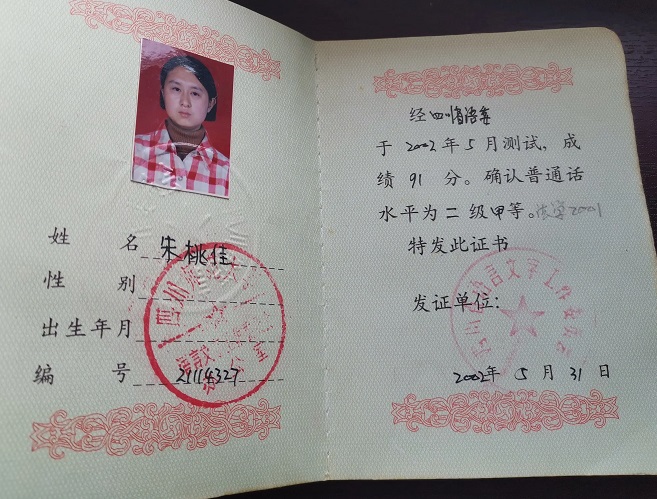 姓 名 朱桃佳
性 别
出生年月
编 号 21114327
经 四川省语委
于 2002 年 5 月测试，成
绩 91 分。确认普通话
水平为 二 级 甲 等。
特发此证书
发证单位：
2002 年 5 月 31 日